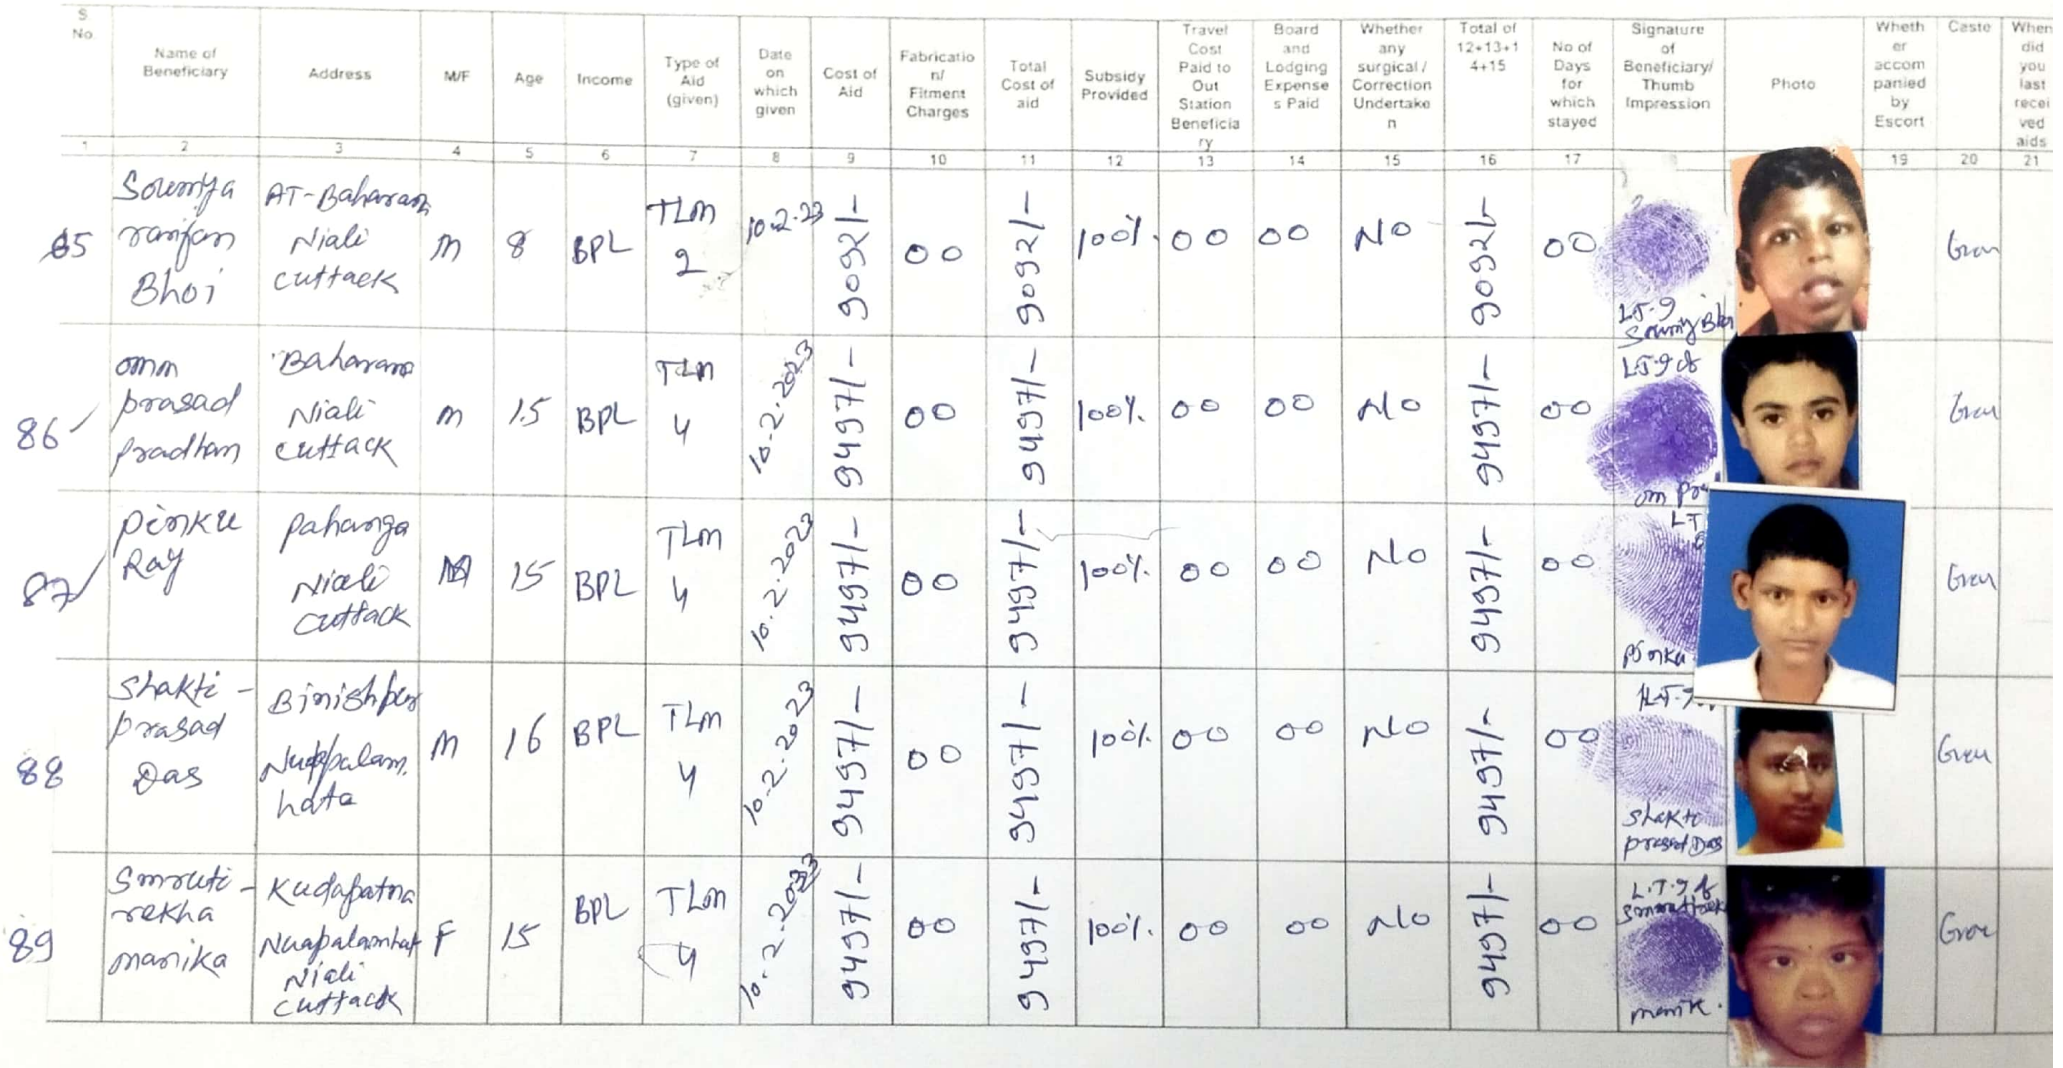 S No
Name of Beneficiary
Address
M/F
Age
Income
Type of Aid (given)
Date on which given
Cost of Aid
Fabricatio n/ Fitment Charges
Total Cost of aid
Subsidy Provided
Travel Cost Paid to Out Station Beneficia ry
Board and Lodging Expense s Paid
Whether any surgical / Correction Undertake n
Total of 12+13+1 4+15
No of Days for which stayed
Signature of Beneficiary/ Thumb Impression
Photo
Wheth er accom panied by Escort
Caste
When did you last recei ved aids
1 2 3 4 5 6 7 8 9 10 11 12 13 14 15 16 17 19 20 21
85 Soumya ranjan Bhoi AT-Baharana Niali cuttack M 8 BPL TLM 2 10.2.23 9092/- 00 9092/- 100% 00 00 No 9092/- 00 Gen
86 omm prasad pradhan Baharana Niali cuttack M 15 BPL TLM 4 10.2.2023 9497/- 00 9497/- 100% 00 00 No 9497/- 00 Gen
87 pinku Ray pahanga Niali cuttack M 15 BPL TLM 4 10.2.2023 9497/- 00 9497/- 100% 00 00 No 9497/- 00 pinku Gen
88 Shakti- prasad Das Binishpur Nuapalam hata M 16 BPL TLM 4 10.2.2023 9497/- 00 9497/- 100% 00 00 No 9497/- 00 Shakti prasad Das Gen
89 Smruti- rekha manika Kudapatna Nuapalamhat Niali cuttack F 15 BPL TLM 4 10.2.2023 9497/- 00 9497/- 100% 00 00 No 9497/- 00 Gen